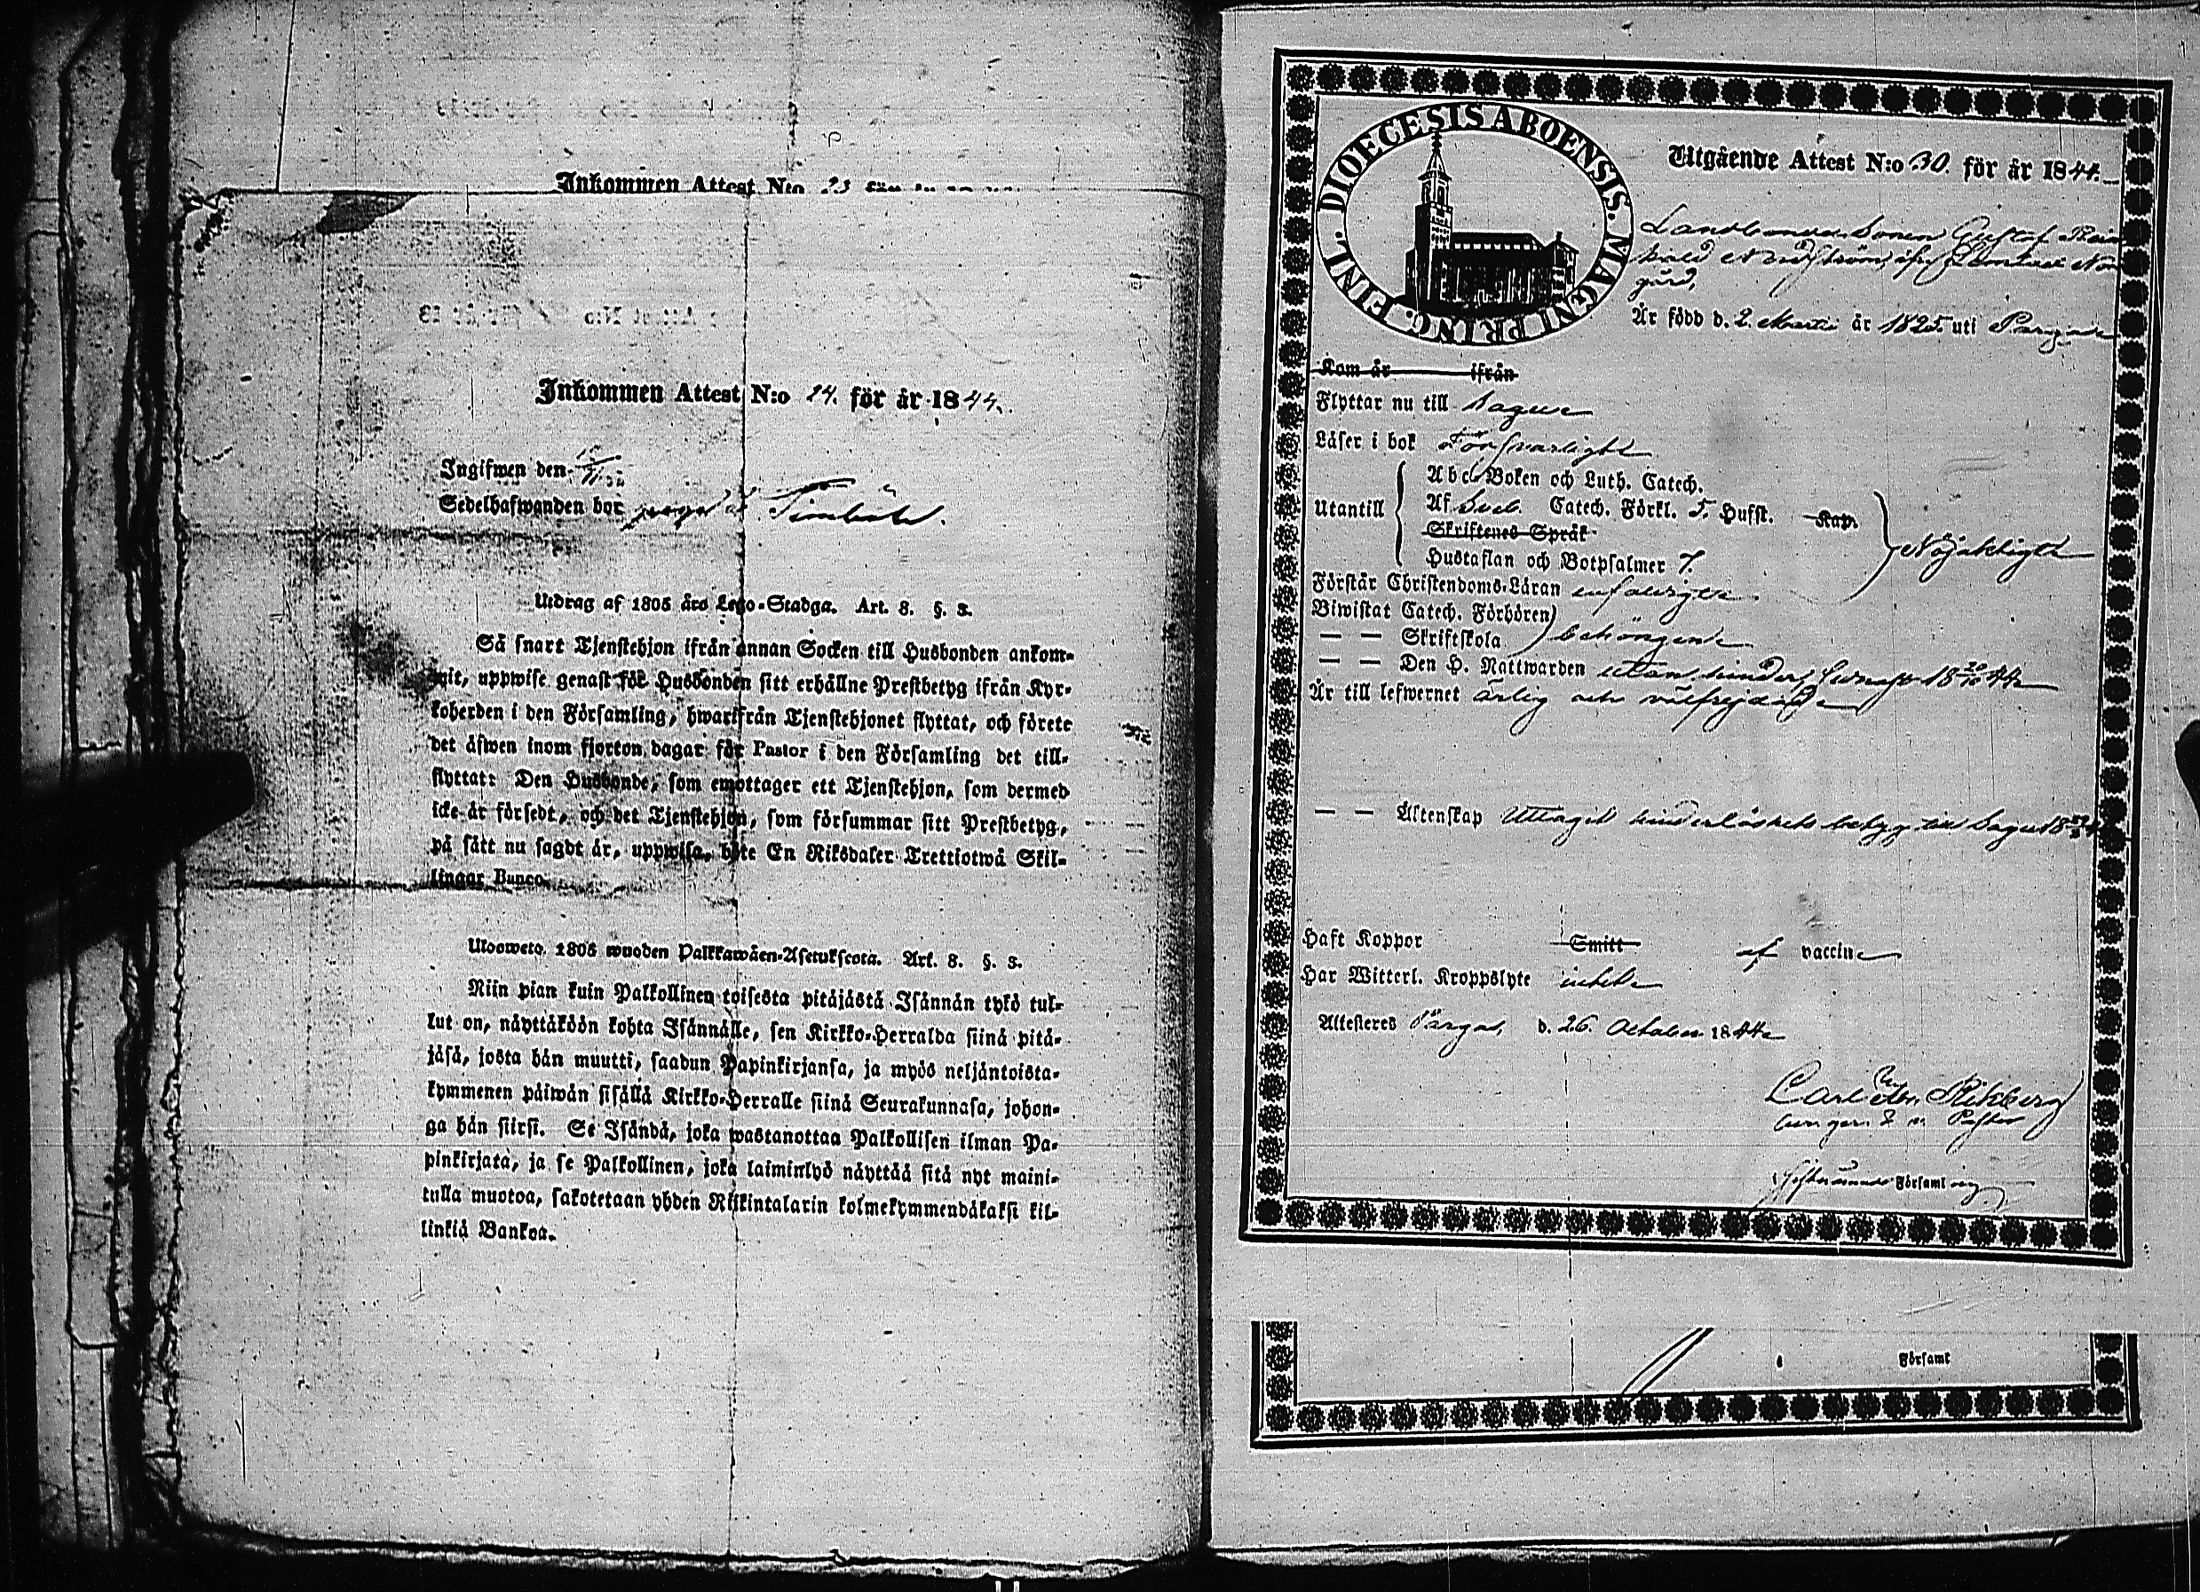 Inkommen Attest N:o 23
Inkommen Attest N:o 24. för år 1844.
Ingifwen den
Sedelhafwanden bor
Utdrag af 1805 års Lego-Stadga. Art. 8. §. 3.
Så snart Tjenstehjon ifrån annan Socken till Husbonden ankom-
mit, uppwise genast för Husbonden sitt erhållne Prestbetyg ifrån Kyr-
koherden i den Församling, hwarifrån Tjenstehjonet flyttat, och förete
det äfwen inom fjorton dagar för Pastor i den Församling det till-
flyttat: Den Husbonde, som emottager ett Tjenstehjon, som dermed
icke är försedt, och det Tjenstehjon, som försummar sitt Prestbetyg,
på sätt nu sagdt är, uppwisa, böte En Riksdaler Trettiotwå Skil-
lingar Banco.
Ulosweto 1805 wuoden Palkkawäen-Asetuksesta. Art. 8. §. 3.
Niin pian kuin Palkollinen toisesta pitäjästä Isännän tykö tul-
lut on, näyttäköön kohta Isännälle, sen Kirkko-Herralda siinä pitä-
jäsä, josta hän muutti, saadun Papinkirjansa, ja myös neljäntoista-
kymmenen päiwän sisällä Kirkko-Herralle siinä Seurakunnasa, johon-
ga hän siirsi. Se Isändä, joka wastanottaa Palkollisen ilman Pa-
pinkirjata, ja se Palkollinen, joka laiminlyö näyttää sitä nyt maini-
tulla muotoa, sakotetaan yhden Riikintalarin kolmekymmendäkaksi kil-
linkiä Bankoa.
DIOECESIS ABOENSIS. MAGNI PRINC. FINL.
Utgående Attest N:o 30. för år 1844.
Landbonde Sonen Gustaf
gård,
Är född d. 2. Martii år 1825. uti Pargas
Kom år ifrån
Flyttar nu till Sagu
Läser i bok Försvarligt
Utantill
Abc-Boken och Luth. Catech.
Af Sveb. Catech. Förkl. 5. Hufst. Kap.
Skriftenes Språk
Hustaflan och Botpsalmer 7.
Nöjaktigt
Förstår Christendoms-Läran enfaldigt
Biwistat Catech. Förhören
— — Skriftskola
behörigen
— — Den H. Nattwarden utan hinder, senast 18 44
Är till lefwernet ärlig och välfrejdad
— — Äktenskap Uttagit hinderlöshets betyg till Sagu 18
Haft Koppor Smitt af vaccin
Har Witterl. Kroppslyte intet
Attesteras Pargas, d. 26. October 1844
Carl
Pastor
Församling
i Församl